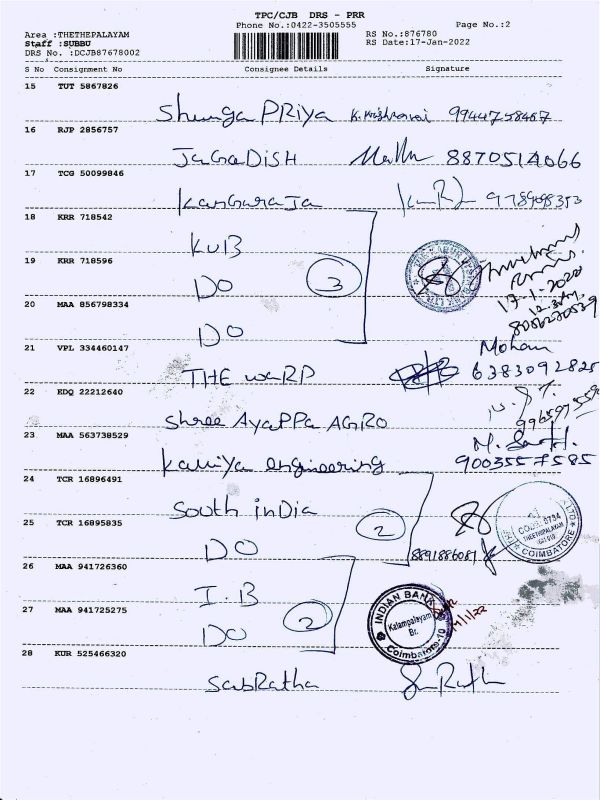 TPC/CJB DRS - PRR
Phone No.:0422-3505555
Page No.:2
Area :THETHEPALAYAM
Staff :SUBBU
DRS No. :DCJB87678002
RS No.:876780
RS Date:17-Jan-2022
S No Consignment No Consignee Details Signature
15 TUT 5867826
PRiya 9944758467
16 RJP 2856757
JaGaDISH 8870514066
17 TCG 50099846
KanGaraJa
18 KRR 718542
KUB
19 KRR 718596
DO 3
17-1-2022
20 MAA 856798334
DO
21 VPL 334460147
Mohan
THE WARP 6383092825
22 EDQ 22212640
Shree AyaPPa AGRO
23 MAA 563738529
Kaniya engineering 9003557585
24 TCR 16896491
South inDia 2
CODE: 0734
THEETHIPALAYAM
COIMBATORE
25 TCR 16895835
DO 8891886081
26 MAA 941726360
I.B
INDIAN BANK
Kalampalayam
Br.
Coimbatore-10
27 MAA 941725275
DO 2
28 KUR 525466320
SabRatha